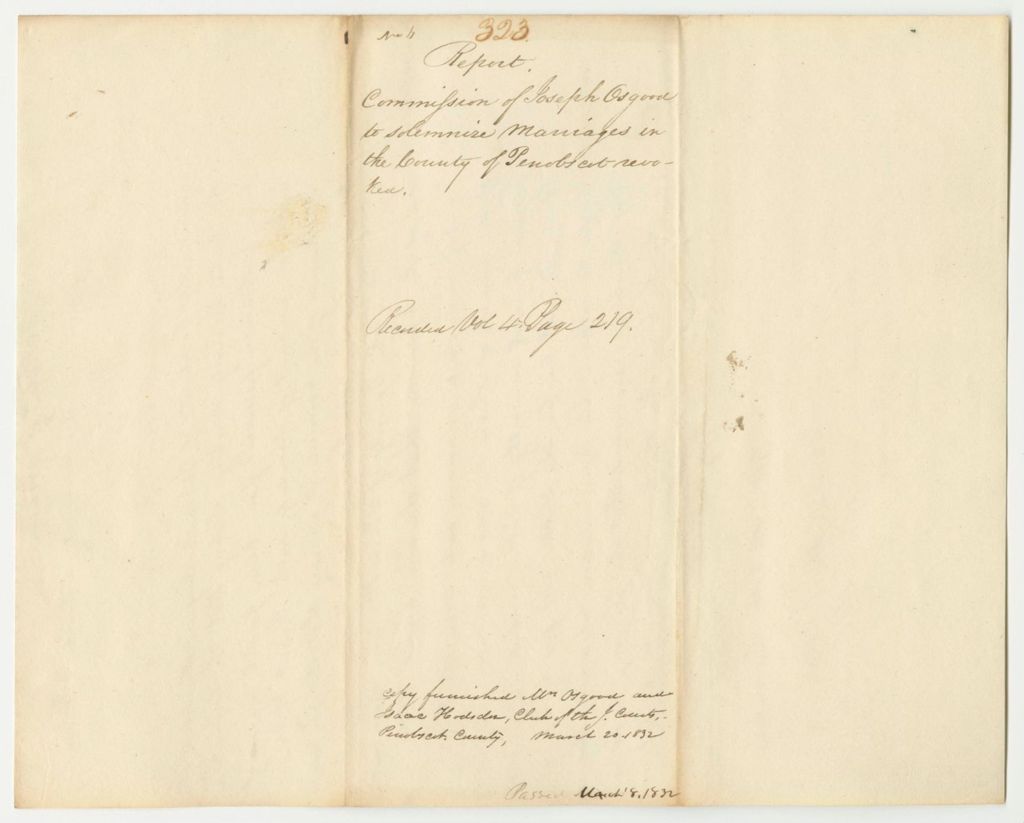 323
Report.
Commission of Joseph Osgood
to solemnize Marriages in
the County of Penobscot revo-
ked.
Recorded Vol 4. Page 219.
Copy furnished Mr. Osgood and
Isaac Hodsdon, Clerk of the J. Courts,
Penobscot County, March 20, 1832
Passed March 8, 1832